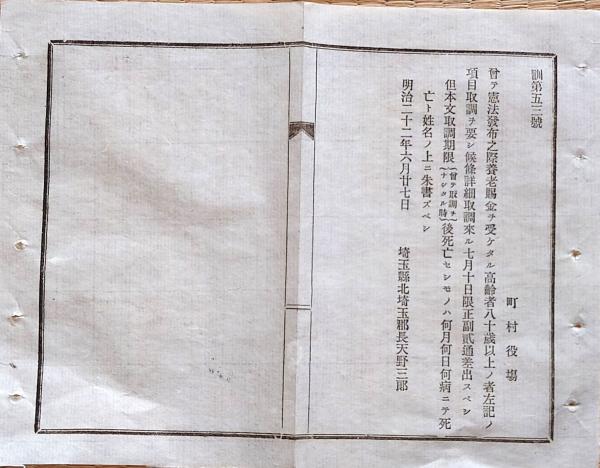 訓第五三號
町村役場
曾テ憲法發布之際養老賜金ヲ受ケタル高齡者八十歲以上ノ者左記ノ
項目取調ヲ要シ候條詳細取調來ル七月十日限正副貳通差出スベシ
但本文取調期限(曾テ取調ヲナシタル時)後死亡セシモノハ何月何日何病ニテ死
亡ト姓名ノ上ニ朱書スベシ
明治二十二年六月廿七日
埼玉縣北埼玉郡長天野三郞